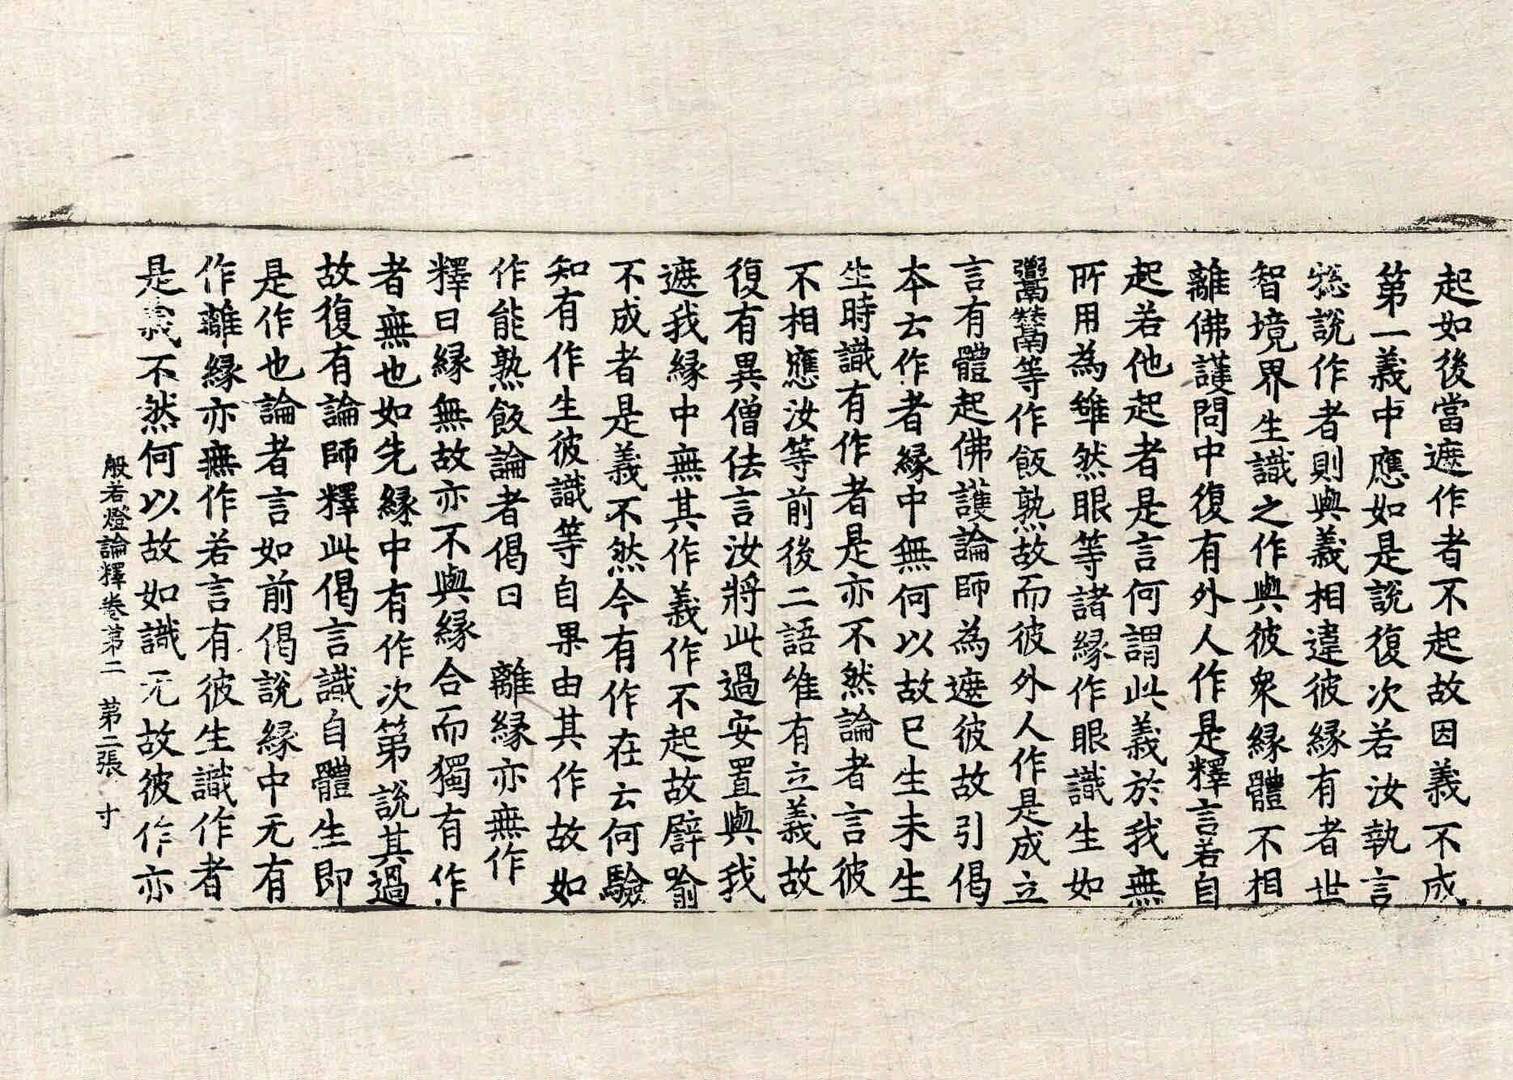 起如後當遮作者不起故因義不成
第一義中應如是說復次若汝執言
緣說作者則與義相違彼緣有者世
智境界生識之作與彼眾緣體不相
離佛護問中復有外人作是釋言若自
起若他起者是言何謂此義於我無
所用為雖然眼等諸緣作眼識生如
鬻𩱡等作飯熟故而彼外人作是成立
言有體起佛護論師為遮彼故引偈
本云作者緣中無何以故已生未生
生時識有作者是亦不然論者言彼
不相應汝等前後二語唯有立義故
復有異僧佉言汝將此過安置與我
遮我緣中無其作義作不起故譬喻
不成者是義不然今有作在云何驗
知有作生彼識等自果由其作故如
作能熟飯論者偈曰　離緣亦無作
釋曰緣無故亦不與緣合而獨有作
者無也如先緣中有作次第說其過
故復有論師釋此偈言識自體生即
是作也論者言如前偈說緣中无有
作離緣亦無作若言有彼生識作者
是義不然何以故如識无故彼作亦
般若燈論釋卷第二　第二張　寸